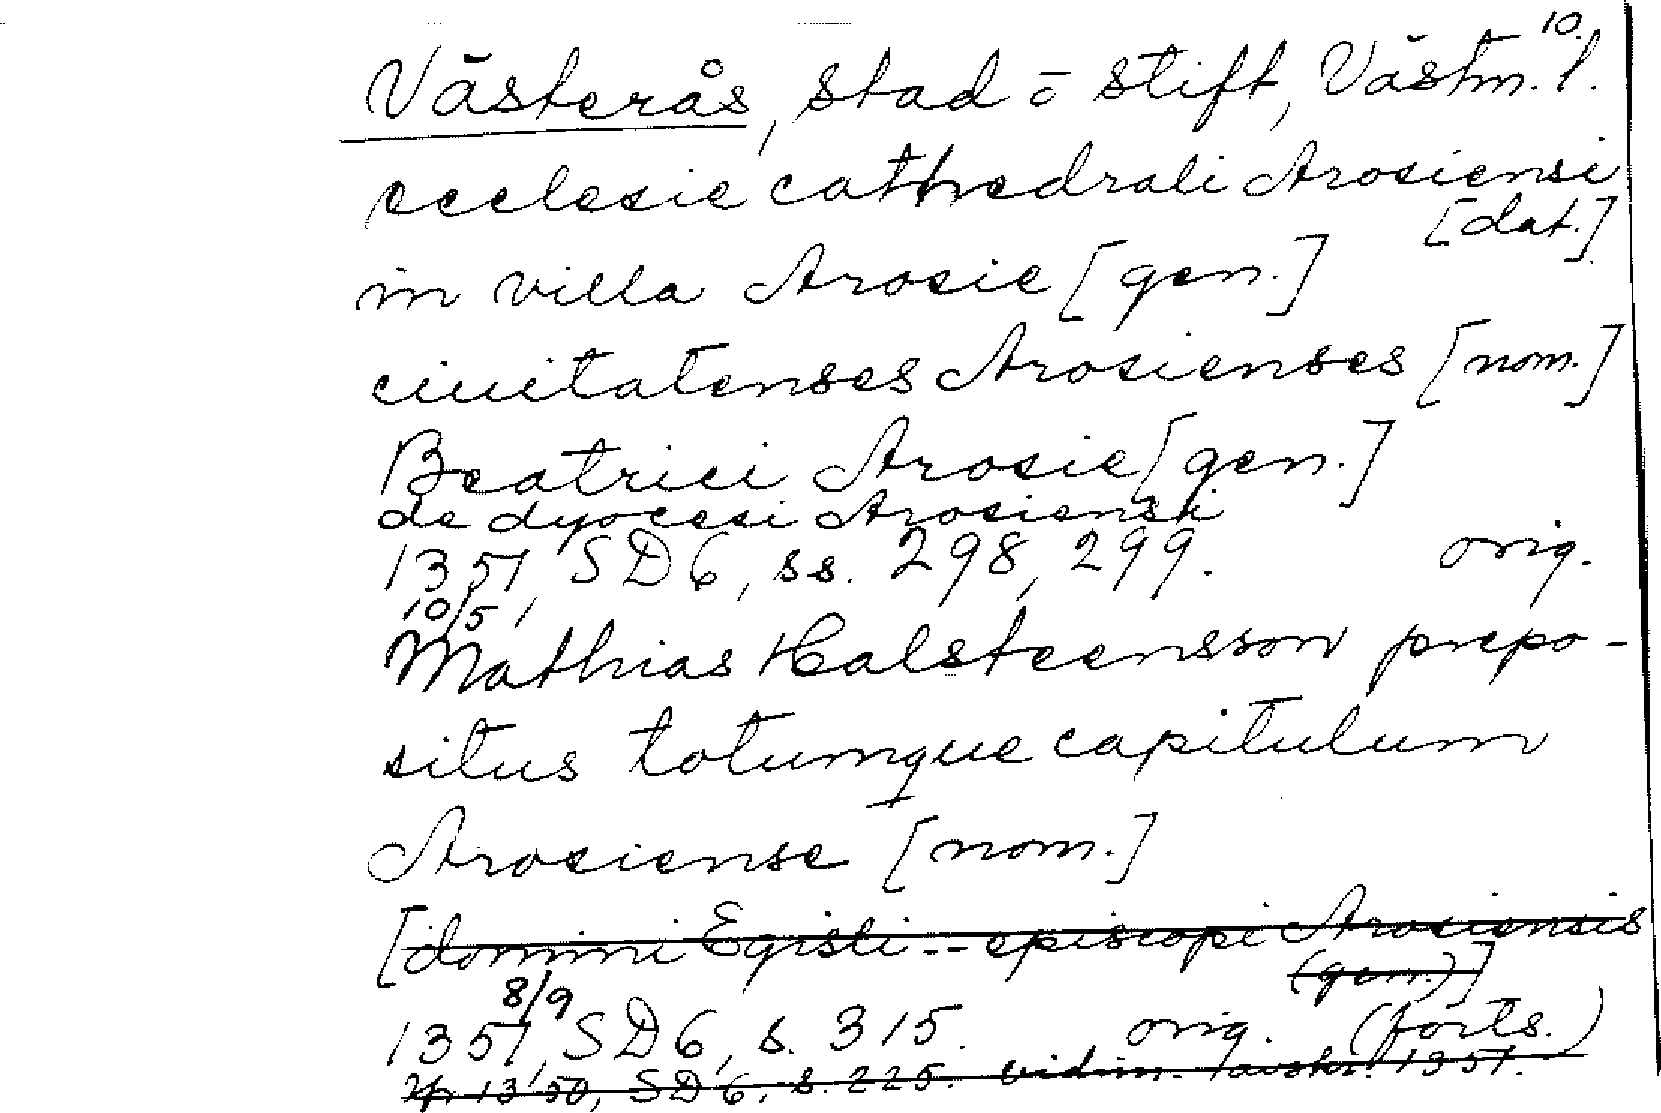 10.
Västerås, stad o stift, Västm. l.
ecclesie cathedrali Arosiensi
[dat.]
in villa Arosie [gen.]
ciuitatenses Arosienses [nom.]
Beatrici Arosie [gen.]
de dyocesi Arosiensi
1351, SD6, ss. 298, 299. orig.
10/5
Mathias Halsteensson prepo-
situs totumque capitulum
Arosiense [nom.]
[domini Egisli -- episcopi Arosiensis
(gen.)]
8/9
1351, SD6, s. 315. orig. (forts.)
1350, SD6, s. 225. vidim. 1351.